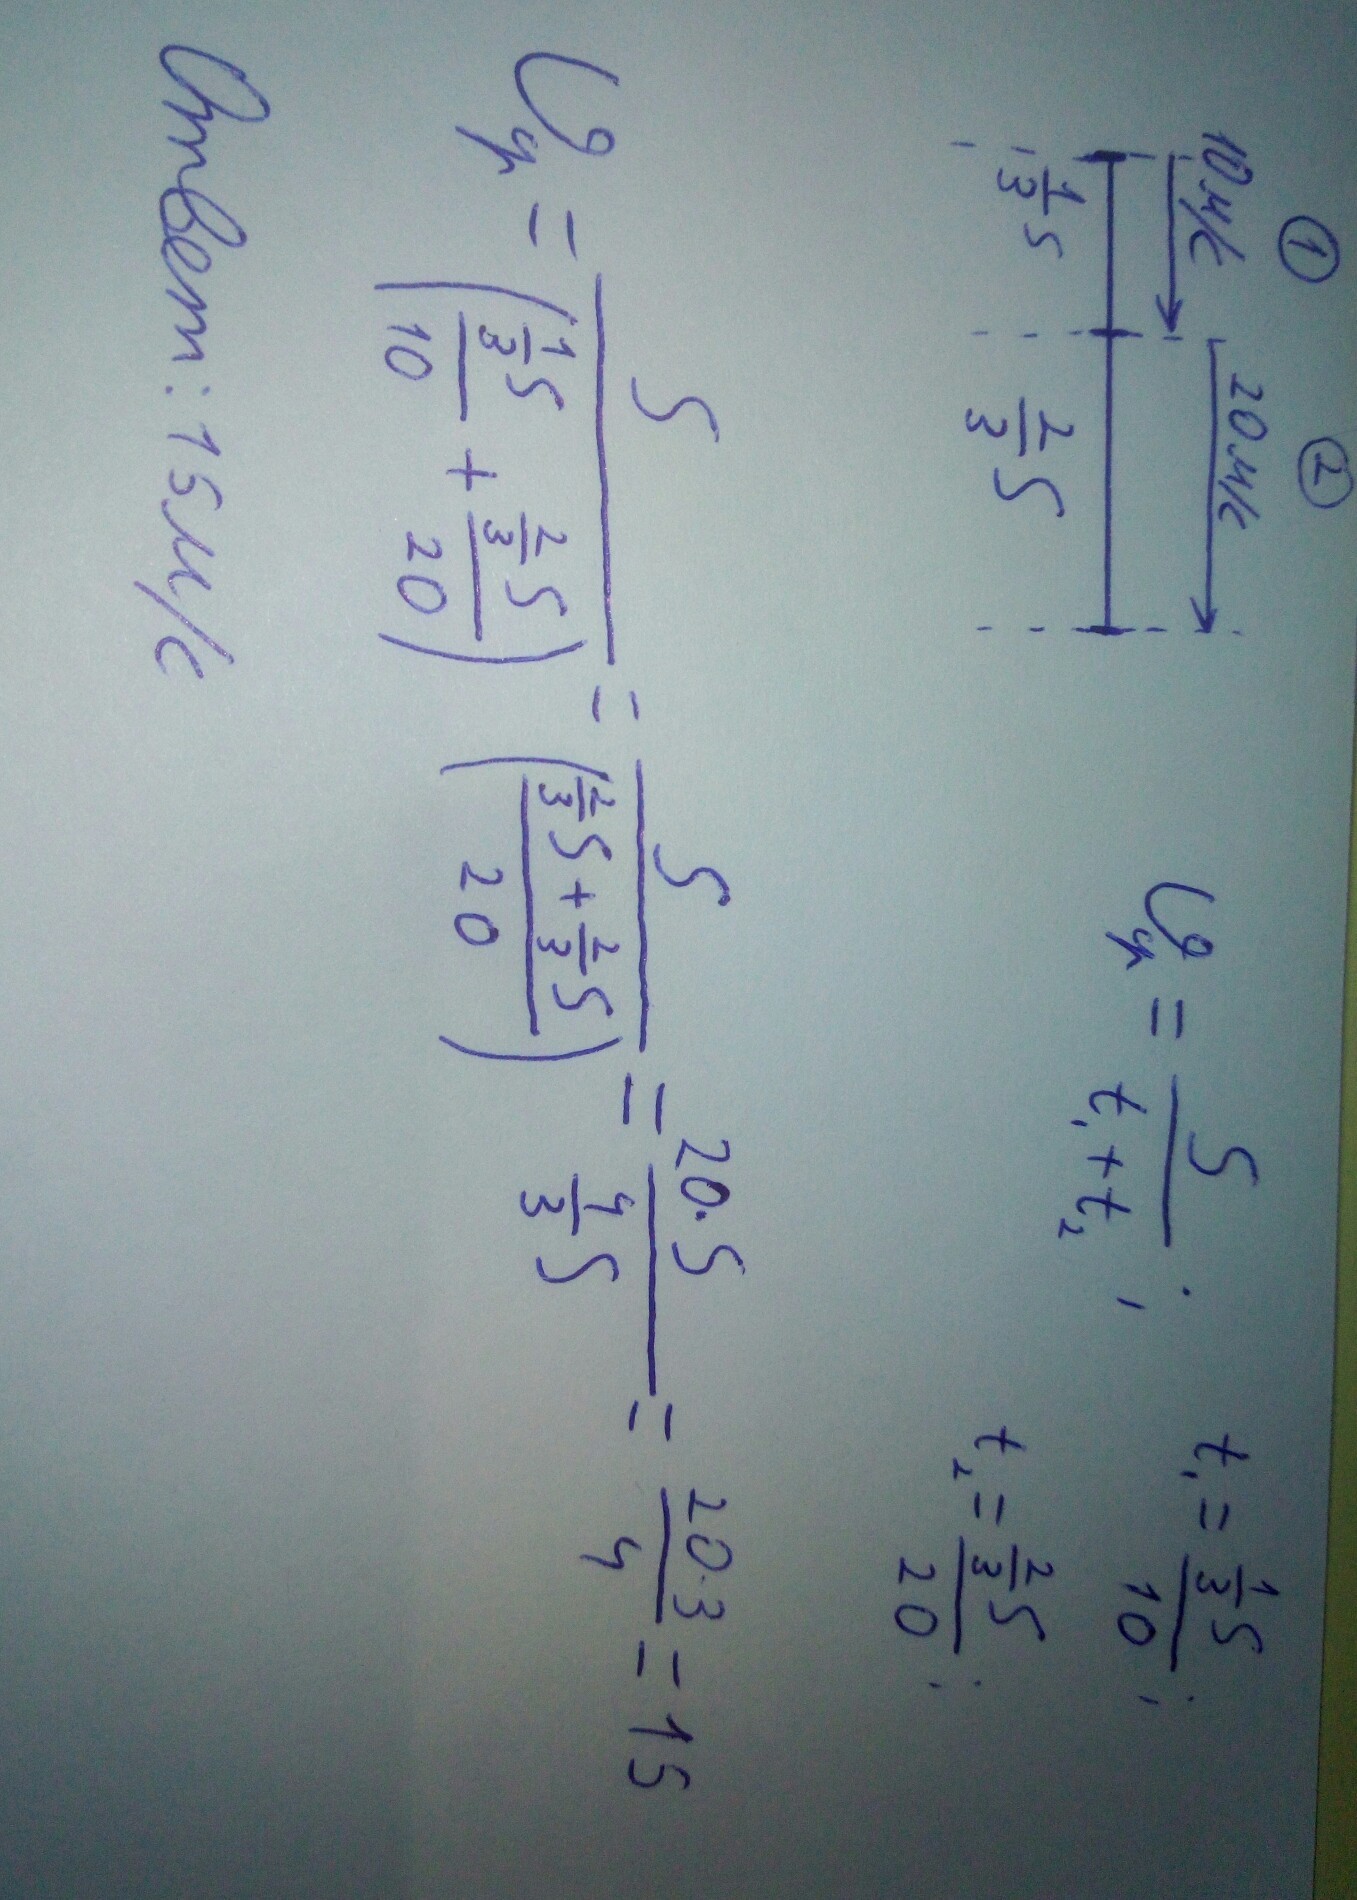 ① ②
10 м/с 20 м/с
1/3 S 2/3 S
υ₄ = S/(t₁+t₂) ; t₁ = (1/3 S)/10 ;
t₂ = (2/3 S)/20 ;
υ₄ = S/((1/3 S)/10 + (2/3 S)/20) = S/((2/3 S + 2/3 S)/20) = 20·S/(4/3 S) = 20·3/4 = 15
Ответ: 15 м/с